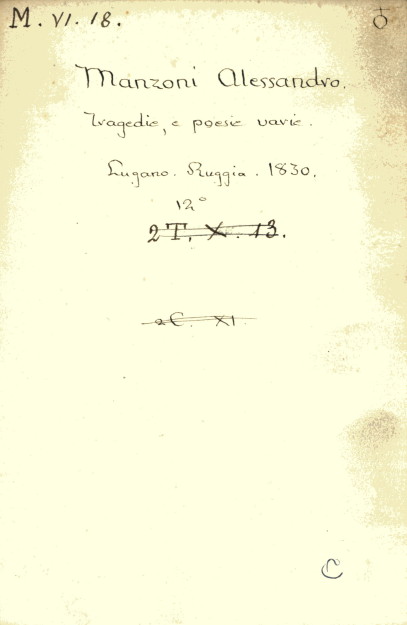 M. VI. 18.
Manzoni Alessandro.
Tragedie, e poesie varie.
Lugano. Ruggia. 1830.
12°
2 T. X. 13.
2 C. XI.
C